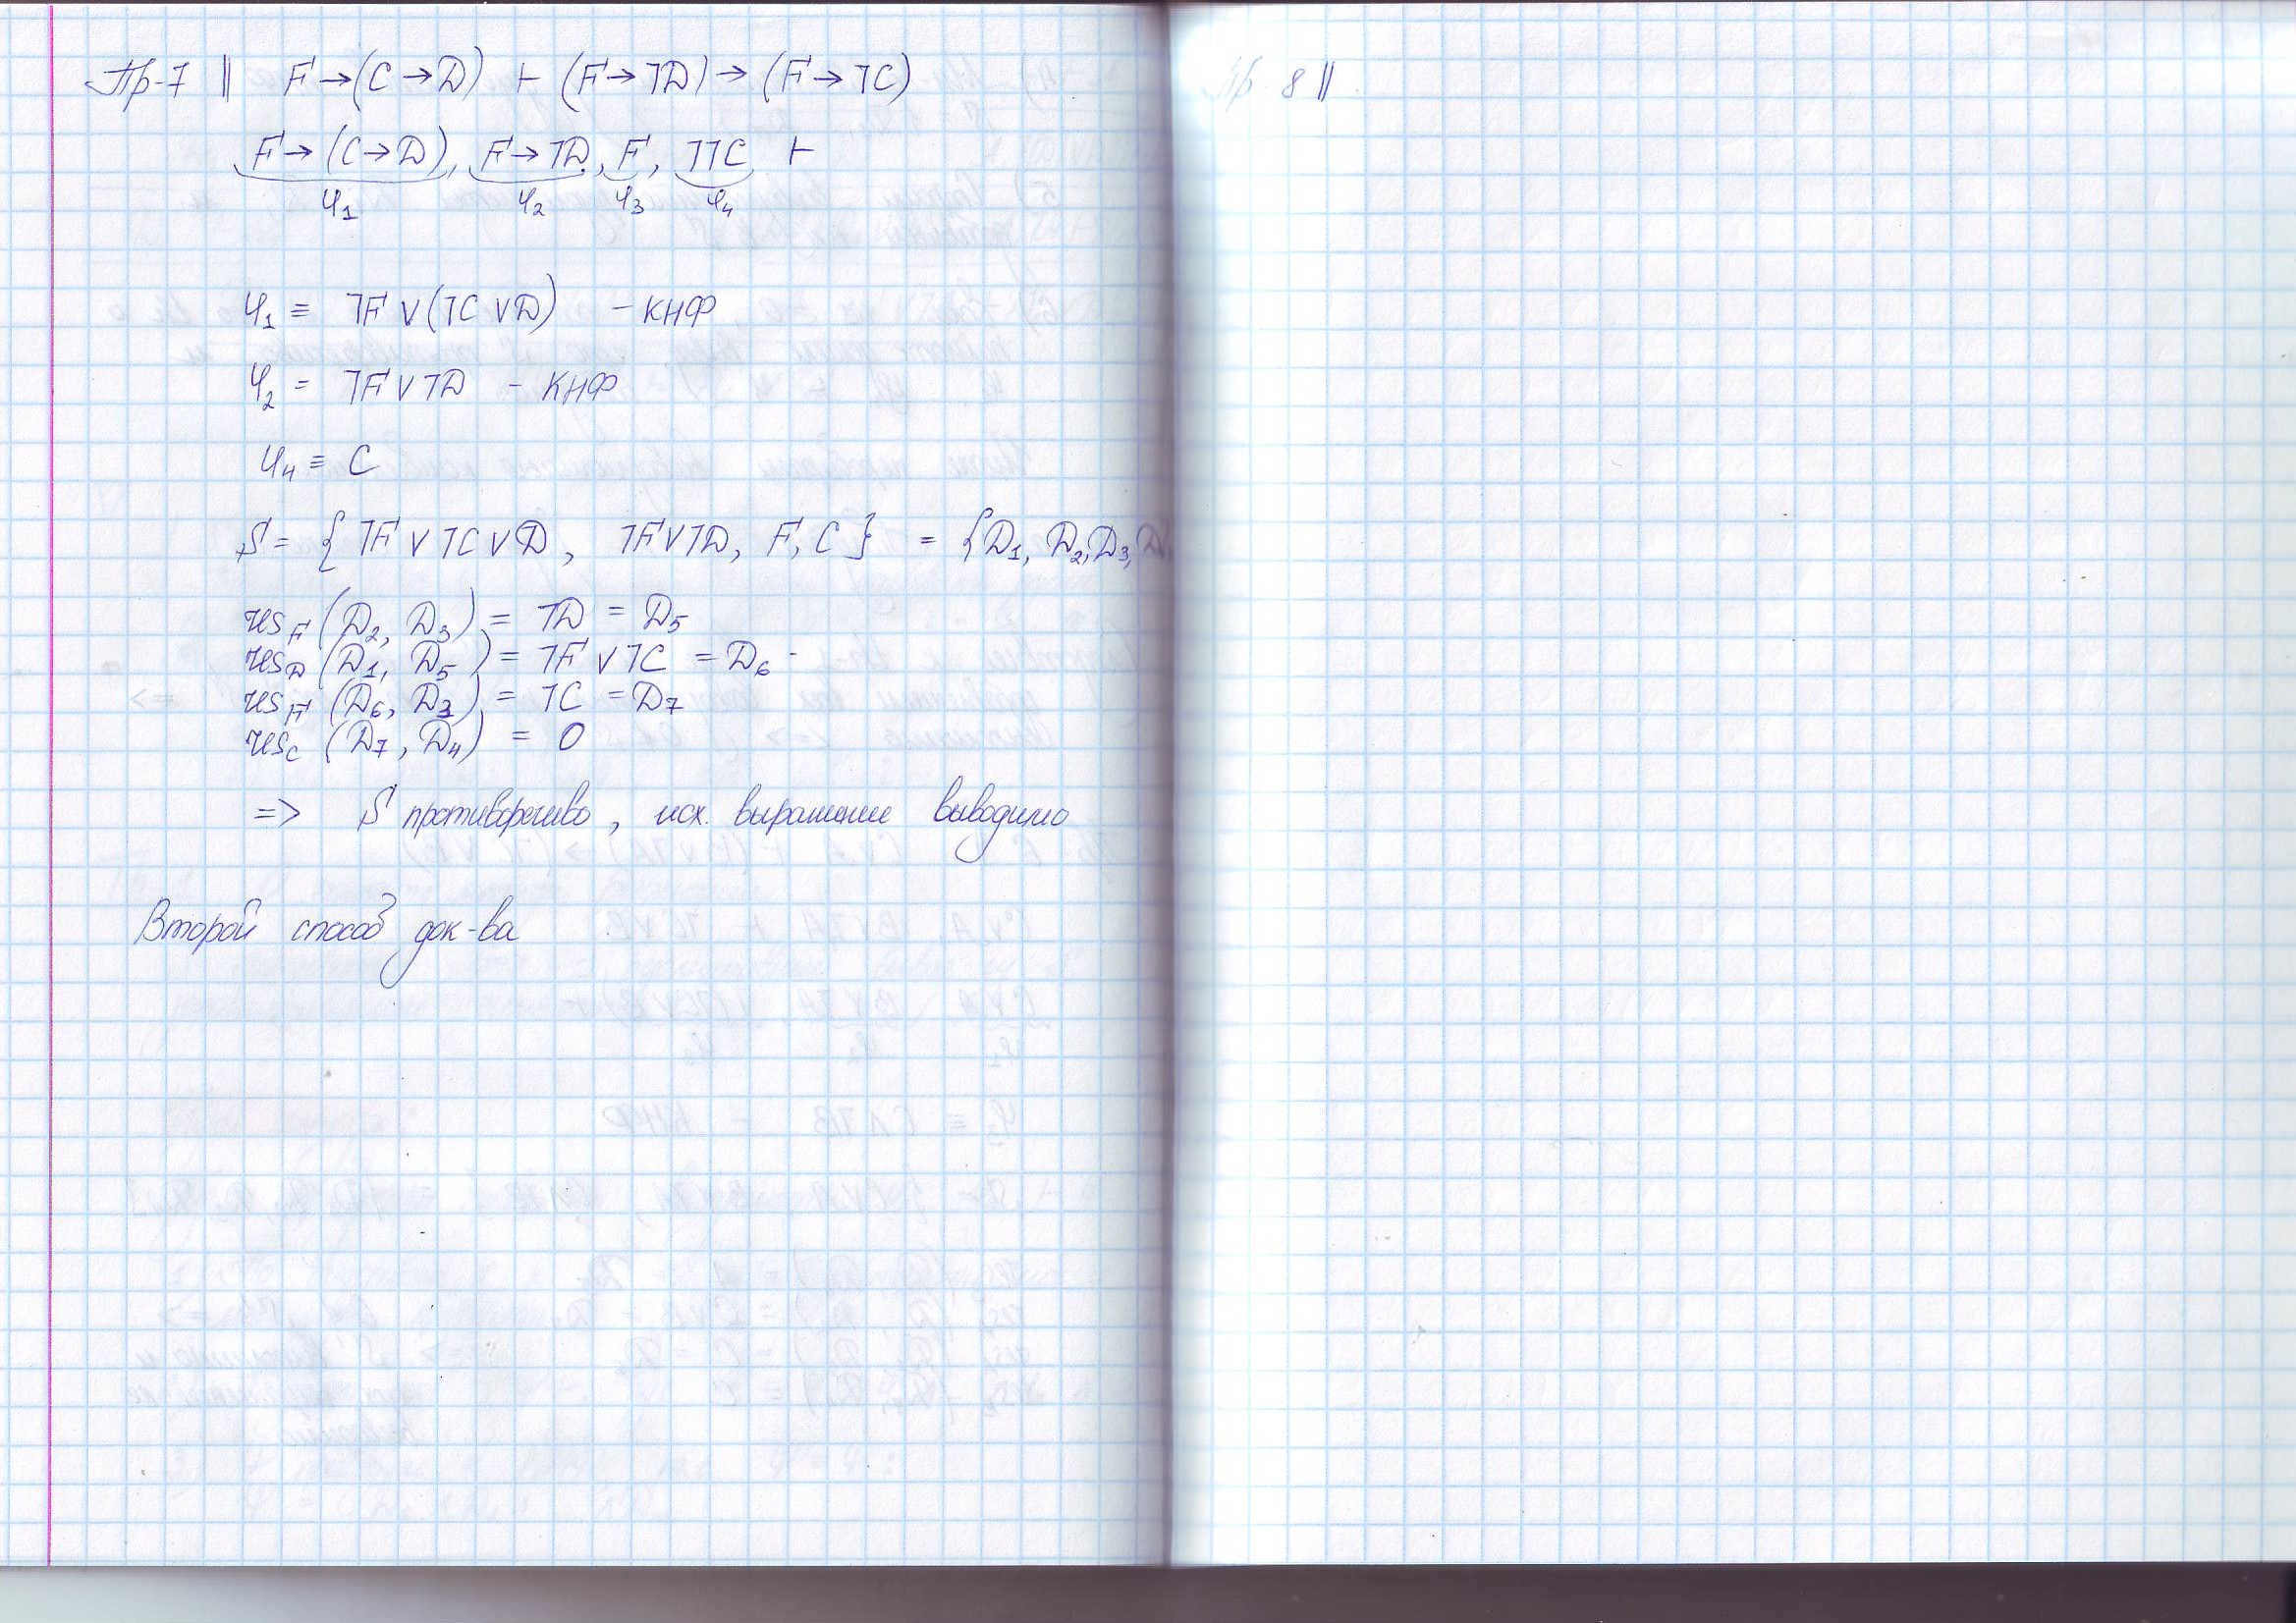 Пр-7 || F→(C→D) ⊢ (F→⅂D)→(F→⅂C)
F→(C→D), F→⅂D, F, ⅂⅂C ⊢
φ1 φ2 φ3 φ4
φ1 ≡ ⅂F∨(⅂C∨D) – КНФ
φ2 = ⅂F∨⅂D – КНФ
φ4 ≡ C
S = {⅂F∨⅂C∨D, ⅂F∨⅂D, F, C} = {D1, D2, D3, D
res_F (D2, D3) = ⅂D = D5
res_D (D1, D5) = ⅂F∨⅂C = D6
res_F (D6, D3) = ⅂C = D7
res_C (D7, D4) = 0
=> S противоречиво, исх. выражение выводимо
Второй способ док-ва
Пр. 8 ||